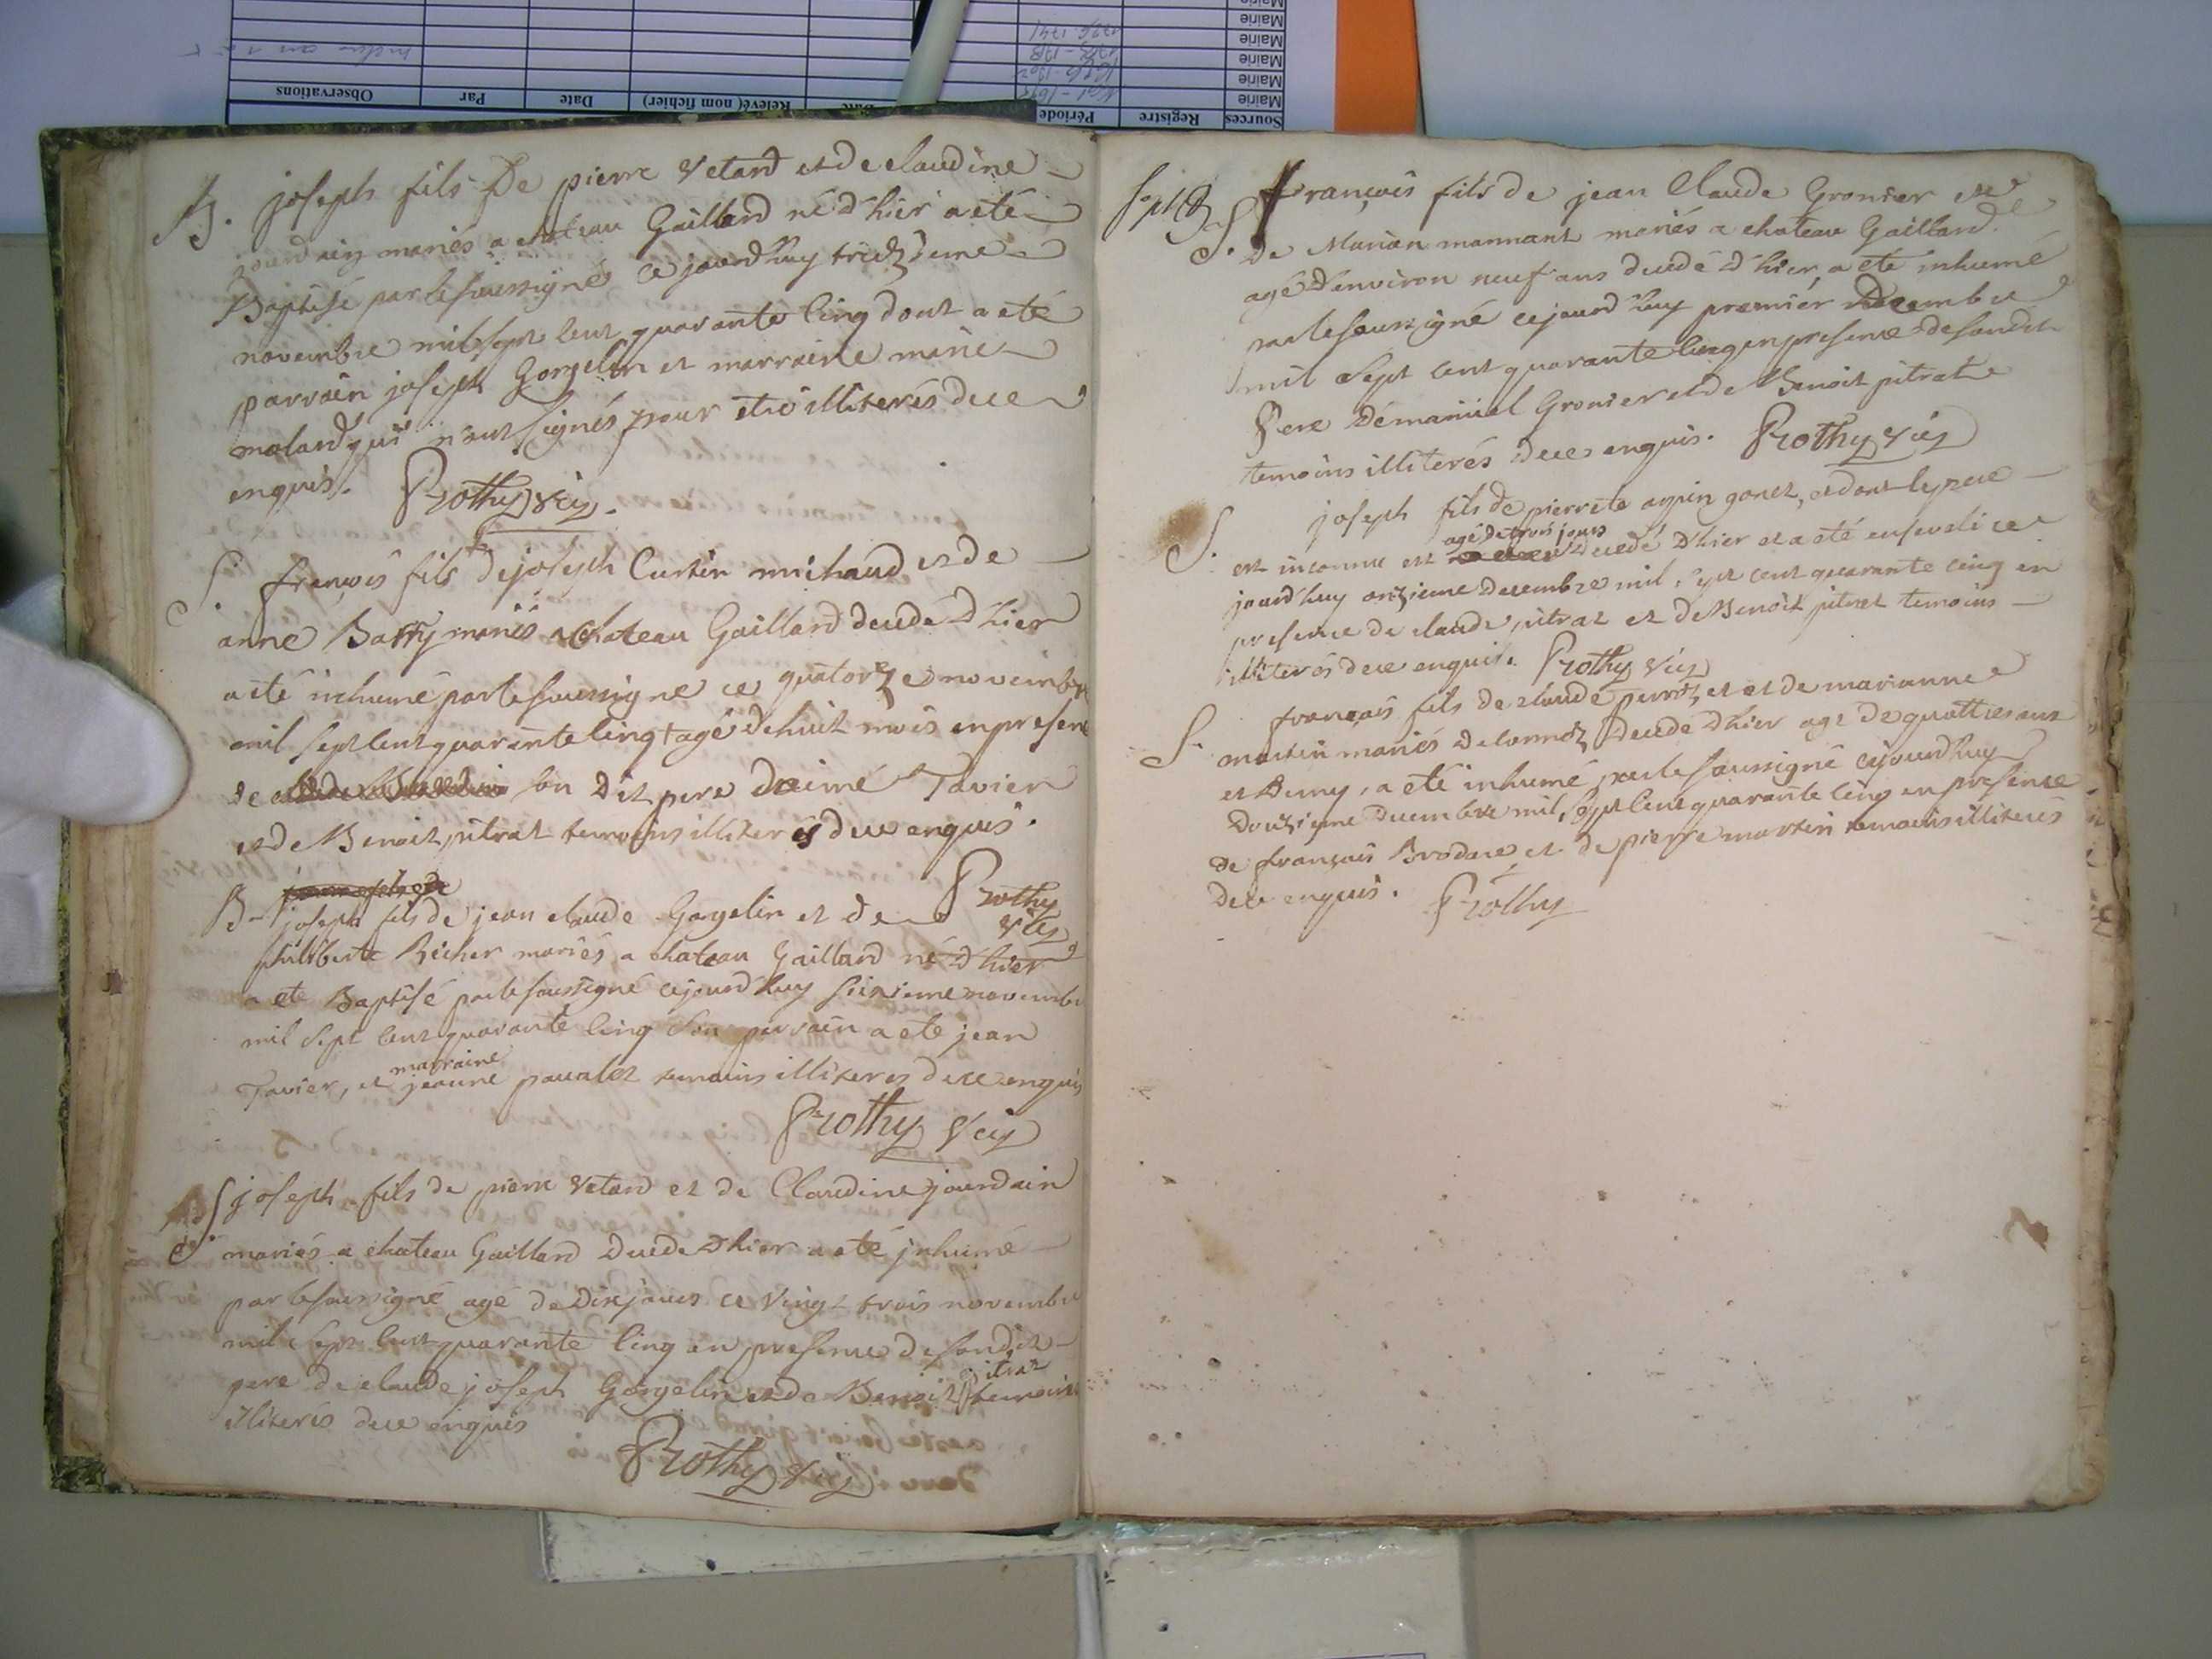 Sources Registre Période Date Relevé( nom fichier) Date Par Observations
Mairie
Mairie
Mairie
Mairie
Mairie
B. joseph fils De pierre Vetard et de claudine
jourdain mariés a chateau Gaillard né d'hier a eté
Baptisé par le soussigné ce jourdhuy treizieme
novembre mil sept cent quarante cinq dont a eté
parrain joseph Gorgelin et marraine marie
malard qui n'ont signés pour etre illiterés de ce
enquis. Prothy vic.
S. francois fils de joseph Curtin michaud et de
anne Barry mariés a chateau Gaillard decedé d'hier
a eté inhumé par le soussigné ce quatorze novembre
mil sept cent quarante cinq agé de huit mois en presence
de son dit pere daimé Tavier
et de Benoit pitrat temoins illiterés de ce enquis.
Prothy
vic
B. joseph fils de jean claude Gorgelin et de
philiberte Richer mariés a chateau Gaillard né d'hier
a eté Baptisé par le soussigné cejourdhuy seixieme novembre
mil sept cent quarante cinq son parrain a eté jean
Tavier, et marraine jeanne temoins illiteres de ce enquis
Prothy vic
S. joseph fils de pierre Vetard et de Claudine jourdain
mariés a chateau Gaillard decede d'hier a eté jnhumé
par le soussigné agé de dix jours ce vingt trois novembre
mil sept cent quarante cinq en presence de son dit
pere de claude joseph Gorgelin et de Benoit pitrat temoins
illiterés de ce enquis
Prothy vic
S. francois fils de jean Claude Gronier et
de Marian mannant mariés a chateau Gaillard
agé d'environ neuf ans decedé d'hier a eté inhumé
par le soussigné cejourd'huy premier Decembre
mil sept cent quarante cinq en presence de son dit
Pere Démanuel Gronier et de Benoit pitrat
temoins illiterés de ce enquis. Prothy vic
S. joseph fils de pierrete arpin gonet, et dont le pere
est inconnu est agé de trois jours decedé d'hier et a eté enseveli ce
jourdhuy onzieme decembre mil sept cent quarante cinq en
presence de claude pitrat et de Benoit pitrat temoins
illiterés de ce enquis. Prothy vic
S. francois fils de claude et de marianne
martin mariés decedé d'hier agé de quattres ans
et demy, a eté inhumé par le soussigné cejourdhuy
douzieme decembre mil sept cent quarante cinq en presence
de francois Brodare et de pierre martin temoins illiterés
de ce enquis. Prothy